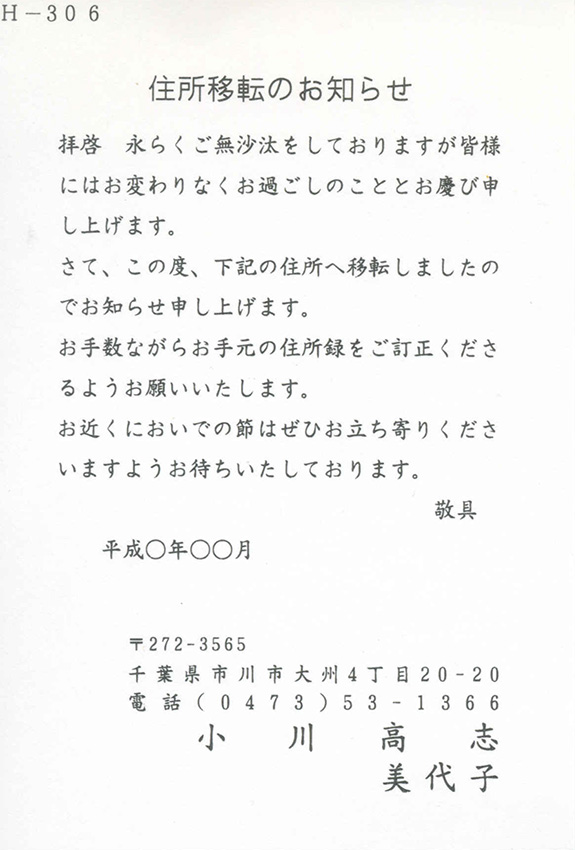 H－306
住所移転のお知らせ
拝啓　永らくご無沙汰をしておりますが皆様
にはお変わりなくお過ごしのこととお慶び申
し上げます。
さて、この度、下記の住所へ移転しましたの
でお知らせ申し上げます。
お手数ながらお手元の住所録をご訂正くださ
るようお願いいたします。
お近くにおいでの節はぜひお立ち寄りくださ
いますようお待ちいたしております。
敬具
平成〇年〇〇月
〒272-3565
千葉県市川市大州4丁目20-20
電話(0473)53-1366
小川高志
美代子